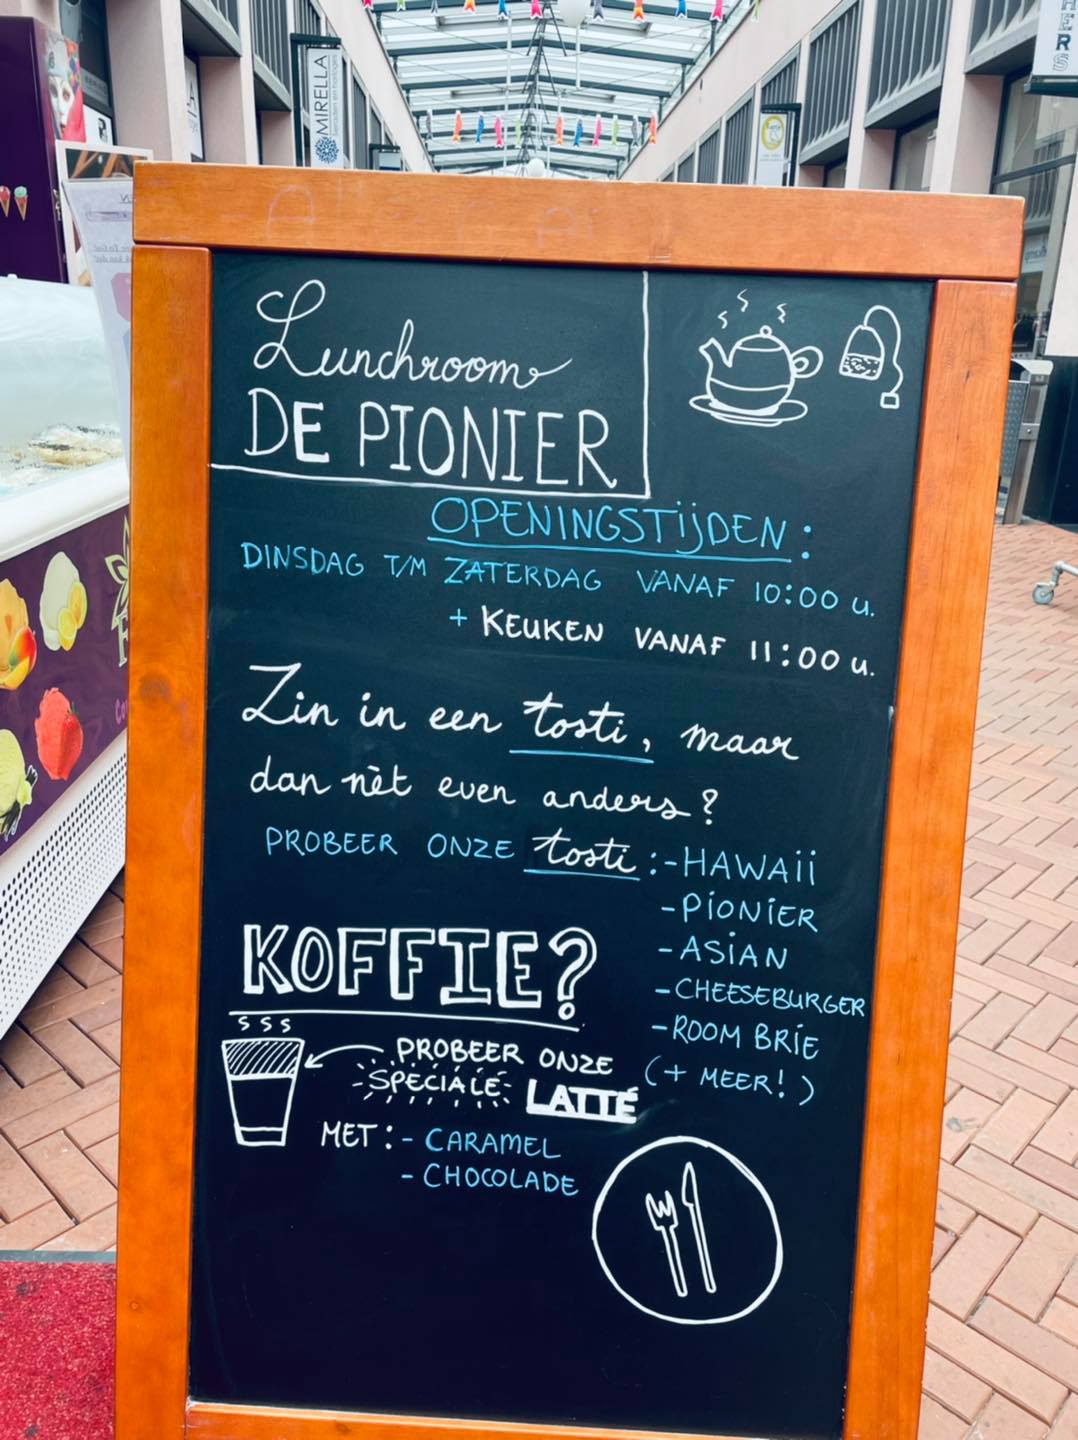 MIRELLA
Lunchroom
DE PIONIER
OPENINGSTIJDEN:
DINSDAG T/M ZATERDAG VANAF 10:00 u.
+ KEUKEN VANAF 11:00 u.
Zin in een tosti, maar
dan nèt even anders?
PROBEER ONZE tosti: -HAWAII
-PIONIER
-ASIAN
-CHEESEBURGER
-ROOM BRIE
(+ MEER!)
KOFFIE?
SSS
PROBEER ONZE
SPECIALE LATTÉ
MET: - CARAMEL
- CHOCOLADE